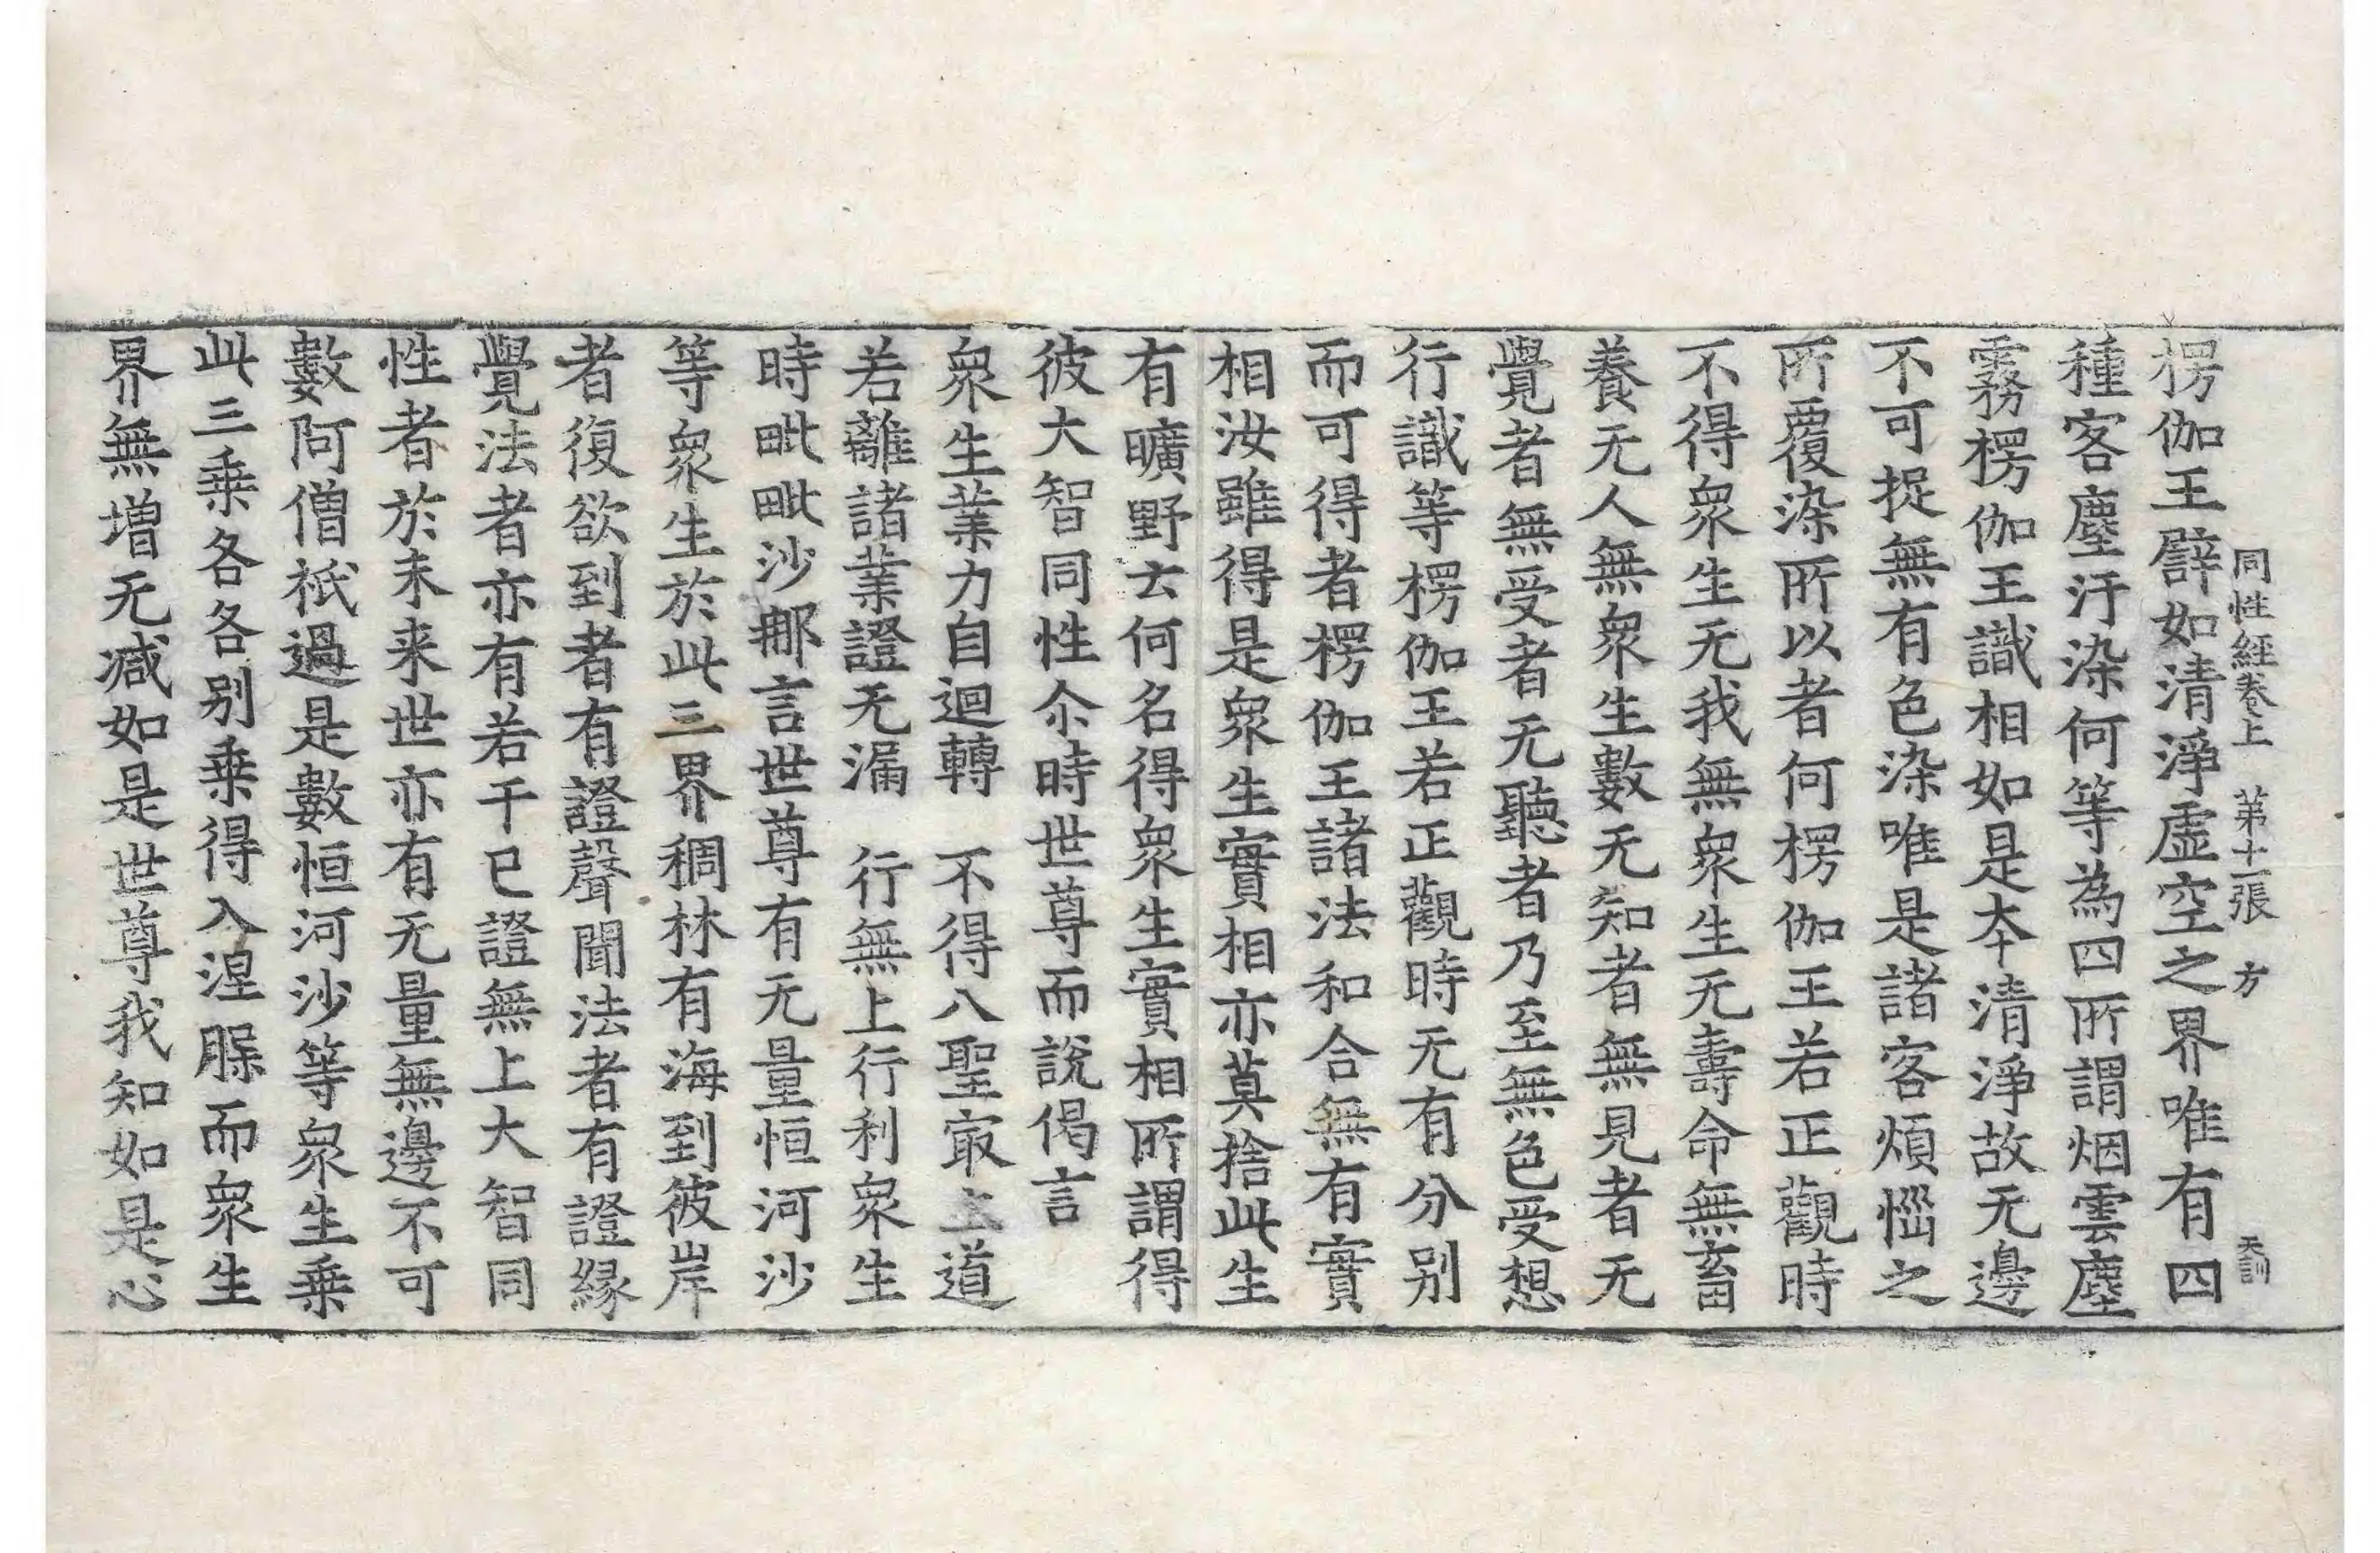 同性經卷上　第十一張　方
天訓
楞伽王譬如清淨虛空之界唯有四
種客塵汙染何等為四所謂烟雲塵
霧楞伽王識相如是本清淨故无邊
不可捉無有色染唯是諸客煩惱之
所覆染所以者何楞伽王若正觀時
不得衆生无我無衆生无壽命無畜
養无人無衆生數无知者無見者无
覺者無受者无聽者乃至無色受想
行識等楞伽王若正觀時无有分別
而可得者楞伽王諸法和合無有實
相汝雖得是衆生實相亦莫捨此生
有曠野云何名得衆生實相所謂得
彼大智同性尒時世尊而說偈言
衆生業力自迴轉　不得八聖㝡上道
若離諸業證无漏　行無上行利衆生
時毗毗沙那言世尊有无量恒河沙
等衆生於此三界稠林有海到彼岸
者復欲到者有證聲聞法者有證緣
覺法者亦有若干已證無上大智同
性者於未来世亦有无量無邊不可
數阿僧祇過是數恒河沙等衆生乗
此三乗各各別乗得入涅槃而衆生
界無增无减如是世尊我知如是心